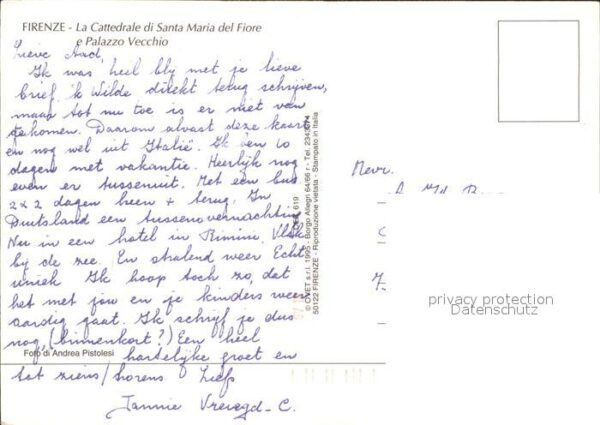 FIRENZE - La Cattedrale di Santa Maria del Fiore
e Palazzo Vecchio
Lieve Aad,
Ik was heel bly met je lieve
brief, ik wilde direkt terug schrijven,
maar tot nu toe is er niet van
gekomen. Daarom alvast deze kaart
en nog wel uit Italië. Ik ben 10
dagen met vakantie. Heerlijk nog
even er tussenuit. Met een bus
2x2 dagen heen + terug. In
Duitsland een tussenovernachting
Nu in een hotel in Rimini. Vlak
by de zee. En stralend weer Echt
uniek Ik hoop toch zo, dat
het met jou en je kinders weer
aardig gaat. Ik schrijf je dus
nog, (binnenkort?) Een heel
hartelijke groet en
tot ziens/horens Liefs
Jannie C.
Foto di Andrea Pistolesi
619
© OVET s.r.l. 1995 - Borgo Allegri 64/66 r - Tel.
50122 FIRENZE - Riproduzione vietata - Stampato in Italia
Mevr.
privacy protection
Datenschutz